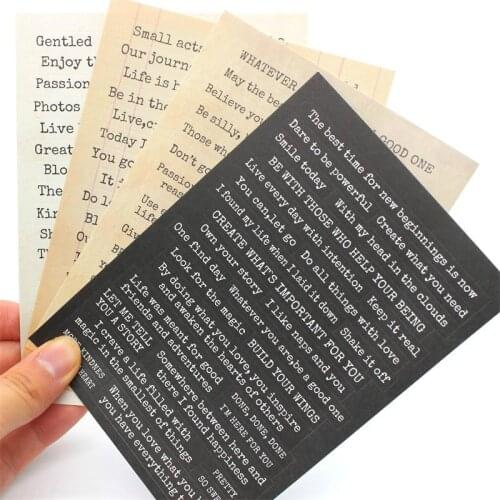 Gentled
Enjoy th
Passion
Photos
Live
Great
Blo
The
Kin
Sha
The
Small acts
Our journ
Life is h
Be in the
Live,c
Today J
You go
It is
Do l
You
Give
Be
WHATEVER
GOOD ONE
May the bes
Believe you
Be silly,
Those wh
Don't go
Passion
reas
Use
The best time for new beginnings is now
Dare to be powerful Create what you need
Smile today With my head in the clouds
BE WITH THOSE WHO HELP YOUR BEING
Live every day with intention Keep it real
You can, let go Do all things with love
I found my life when I laid it down Shake it off
CREATE WHAT'S IMPORTANT FOR YOU
Own your story I like naps and you
One find day Whatever you are, be a good one
Look for the magic BUILD YOUR WINGS
By doing what you love, you inspire
and awaken the hearts of others
Life was meant for good
friends and adventures DONE, DONE, DONE
LET ME TELL
YOU A STORY
I'M HERE FOR YOU
Somewhere between here and
there I found happiness
I crave a life filled with
magic in the smallest of things
PRETTY
SO SW
When you love what you
you have everything
HEART